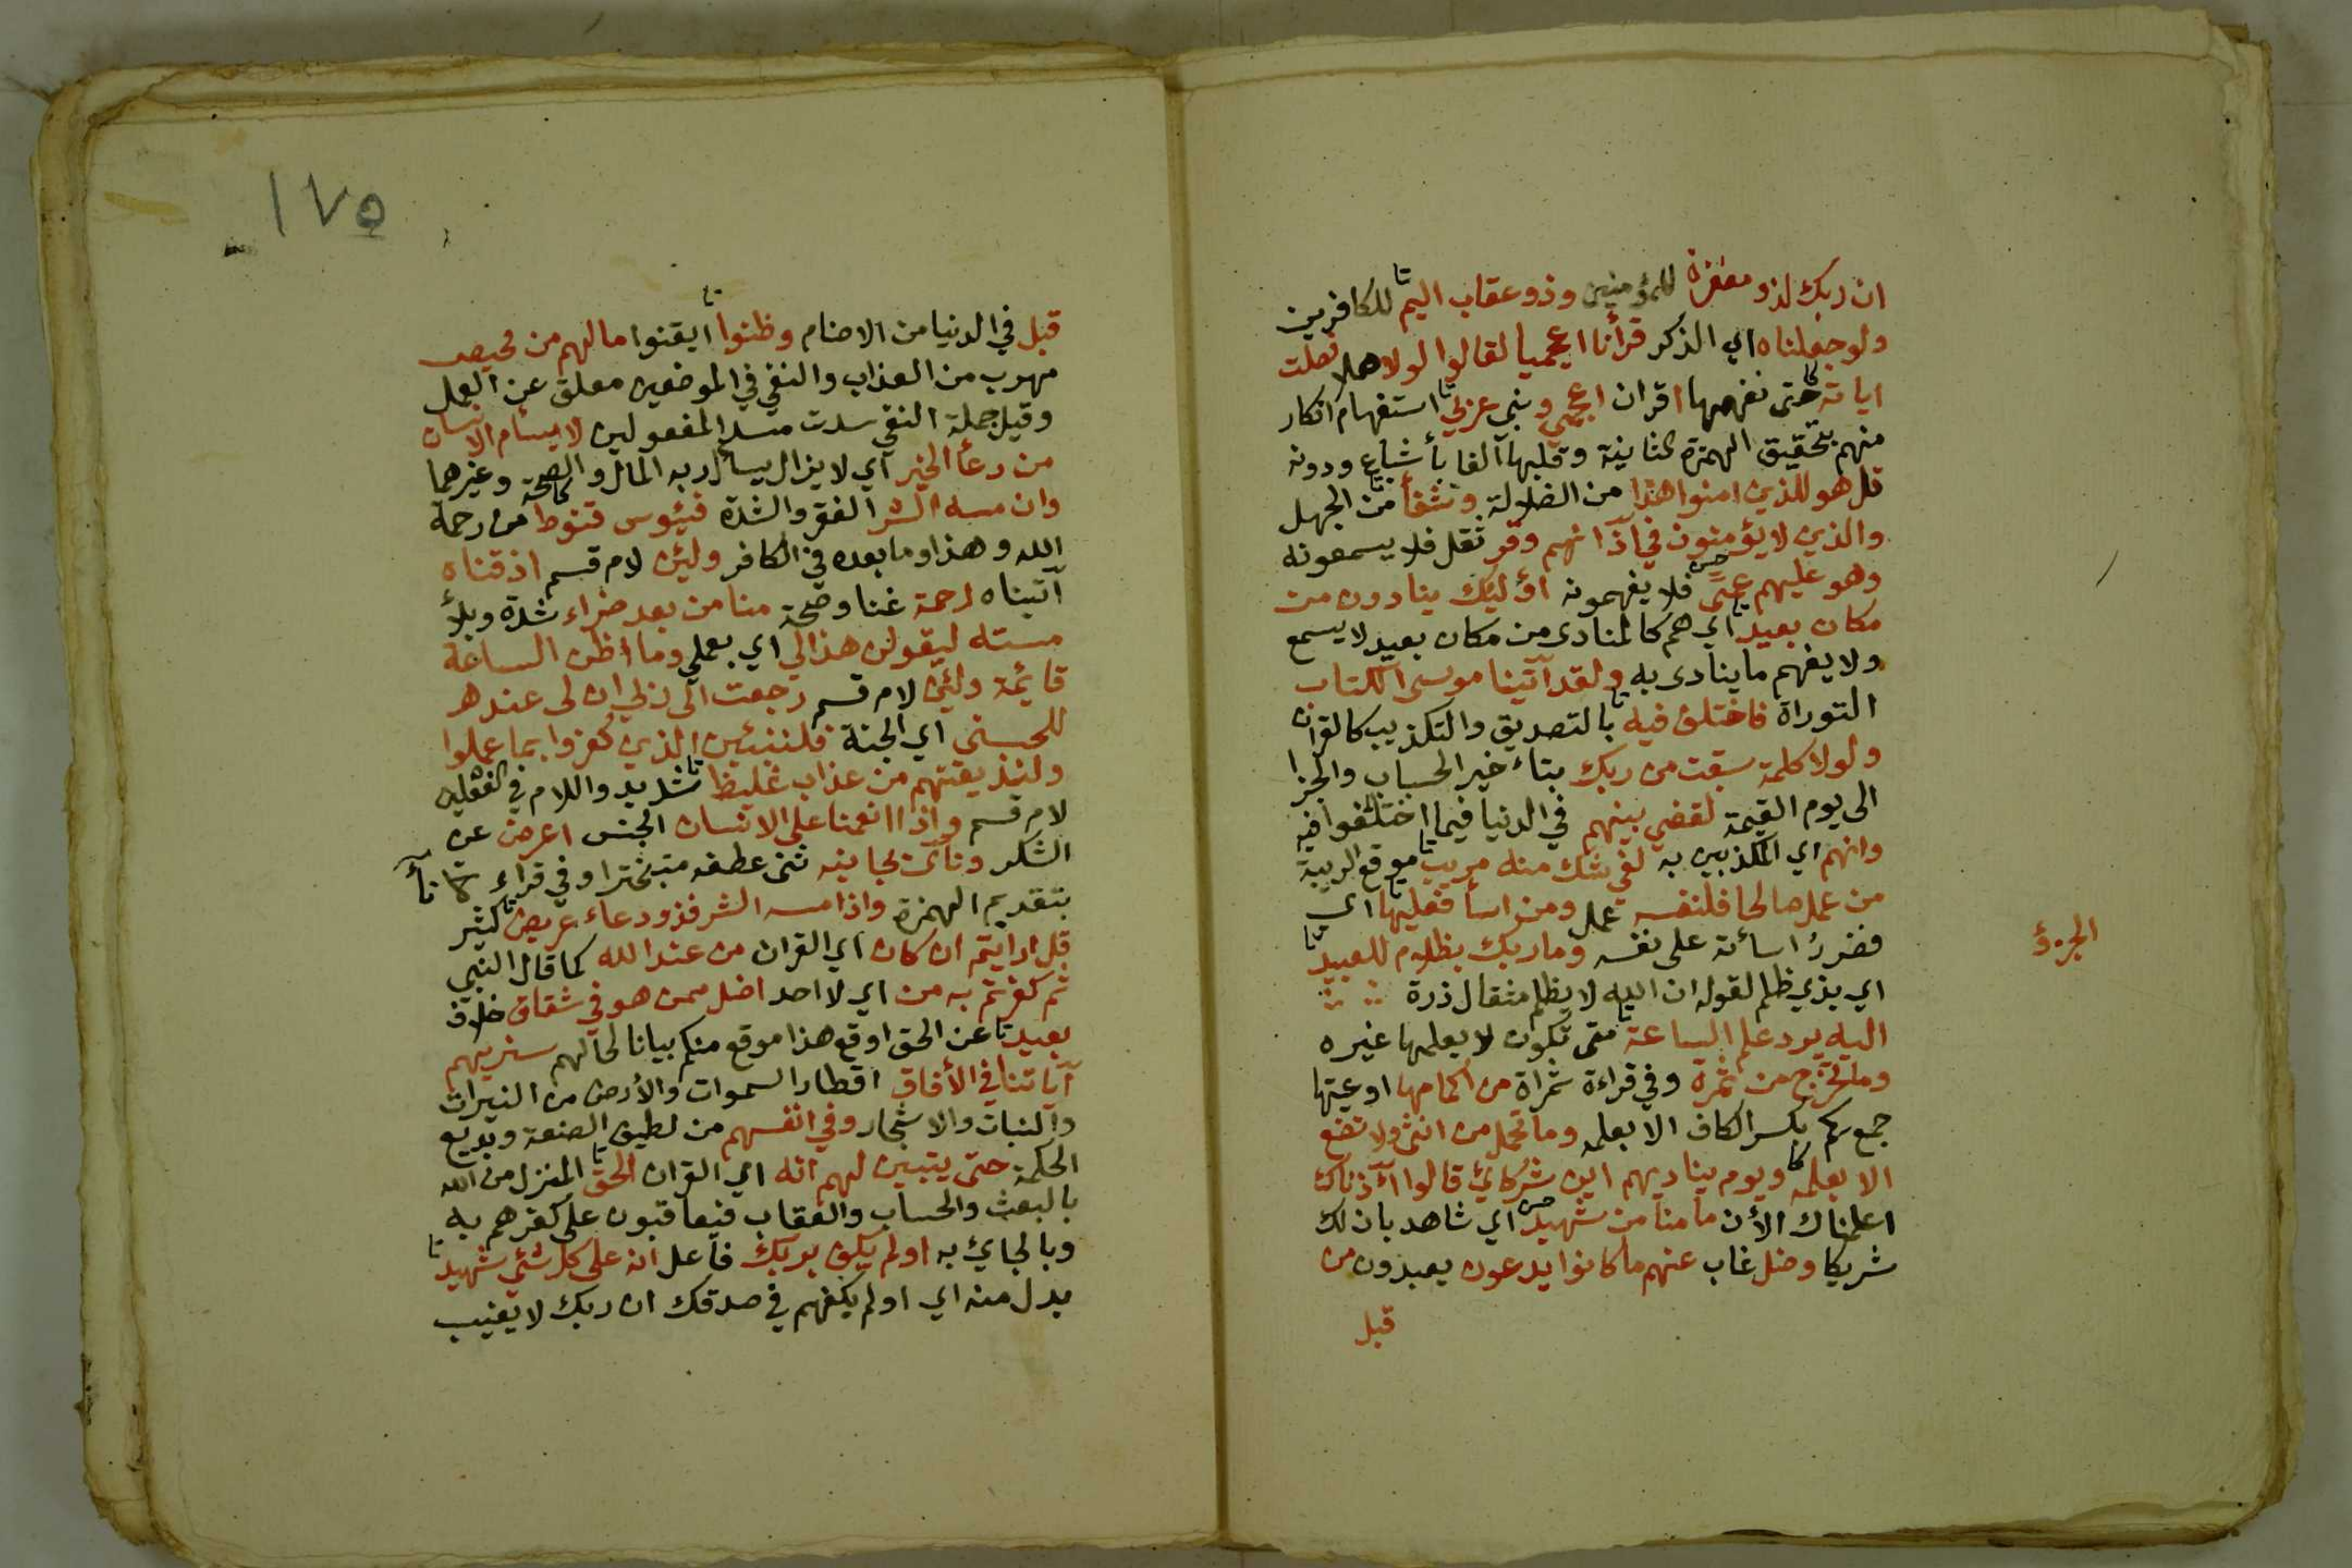 ان ربك لذو مغفرة للمؤمنين وذو عقاب اليم للكافرين
ولو جعلناه اي الذكر قرأنا اعجميا لقالوا لولا هلا فصلت
اياته حتى نفهمها اقران اعجمي ونبي عربي استفهام انكار
منهم بتحقيق الهمزة الثانية وقلبها الفا بأشباع ودونه
قل هو للذين امنوا هدا من الضلالة وشفأ من الجهل
والذين لا يؤمنون في آذانهم وقر ثقل فلا يسمعونه
وهو عليهم عمى فلا يفهمونه اؤليك ينادون من
مكان بعيد اي هم كالمنادى من مكان بعيد لا يسمع
ولا يفهم ما ينادى به ولقد آتينا موسى الكتاب
التوراة فاختلف فيه بالتصديق والتكذيب كالقران
ولولا كلمة سبقت من ربك بتاءخير الحساب والجزا
الى يوم القيمة لقضي بينهم في الدنيا فيما اختلفوا فيه
وانهم اي المكذبين به لفي شك منه مريب موقع الريبة
من عمل صالحا فلنفسه عمل ومن اسأ فعليها اي
فضرر اسأته على نفسه وما ربك بظلام للعبيد
الجزؤ
اي بذي ظلم لقوله ان الله لا يظلم مثقال ذرة
اليه يرد علم الساعة متى تكون لا يعلمها غيره
وما تخرج من ثمرة وفي قراءة ثمراة من اكمامها اوعيتها
جمع كم بكسر الكاف الا بعلمه وما تحمل من انثى ولا تضع
الا بعلمه ويوم يناديهم اين شركائي قالوا آذناك
اعلمناك الأن ما منا من شهيد اي شاهد بان لك
شريكا وضل غاب عنهم ما كانوا يدعون يعبدون من
قبل
١٧٥
قبل في الدنيا من الاصنام وظنوا ايقنوا مالهم من محيص
مهرب من العذاب والنفي في الموضعين معلق عن العمل
وقيل جملة النفي سدت مسد المفعولين لا يسأم الانسان
من دعأ الخير اي لا يزال يسأل ربه المال والصحة وغيرهما
وان مسه الشر الفقر والشدة فيئوس قنوط من رحمة
الله وهذا وما بعده في الكافر ولئن لام قسم اذقناه
آتيناه رحمة غنا وصحة منا من بعد ضراء شدة وبلأ
مسته ليقولن هذا لي اي بعملي وما اظن الساعة
قائمة ولئن لام قسم رجعت الى ربي ان لى عنده
للحسنى اي الجنة فلننبئن الذين كفروا بما عملوا
ولنذيقنهم من عذاب غليظ شديد واللام في الفعلين
لام قسم واذا انعمنا على الانسان الجنس اعرض عن
الشكر ونأى بجانبه ثنى عطفه متبخترا وفي قراءة نأ
بتقديم الهمزة واذا مسه الشر فذو دعاء عريض كثير
قل ارايتم ان كان اي القران من عند الله كما قال النبي
ثم كفرتم به من اي لا احد اضل ممن هو في شقاق خلاف
بعيد عن الحق اوقع هذا موقع منكم بيانا لحالهم سنريهم
آياتنا في الأفاق اقطار السموات والأرض من النيرات
والنبات والاشجار وفي انفسهم من لطيف الصنعة وبديع
الحكمة حتى يتبين لهم انه اي القران الحق المنزل من الله
بالبعث والحساب والعقاب فيعاقبون على كفرهم به
وبالجائ به اولم يكف بربك فاعل انه على كل شئي شهيد
بدل منه اي اولم يكفهم في صدقك ان ربك لا يغيب